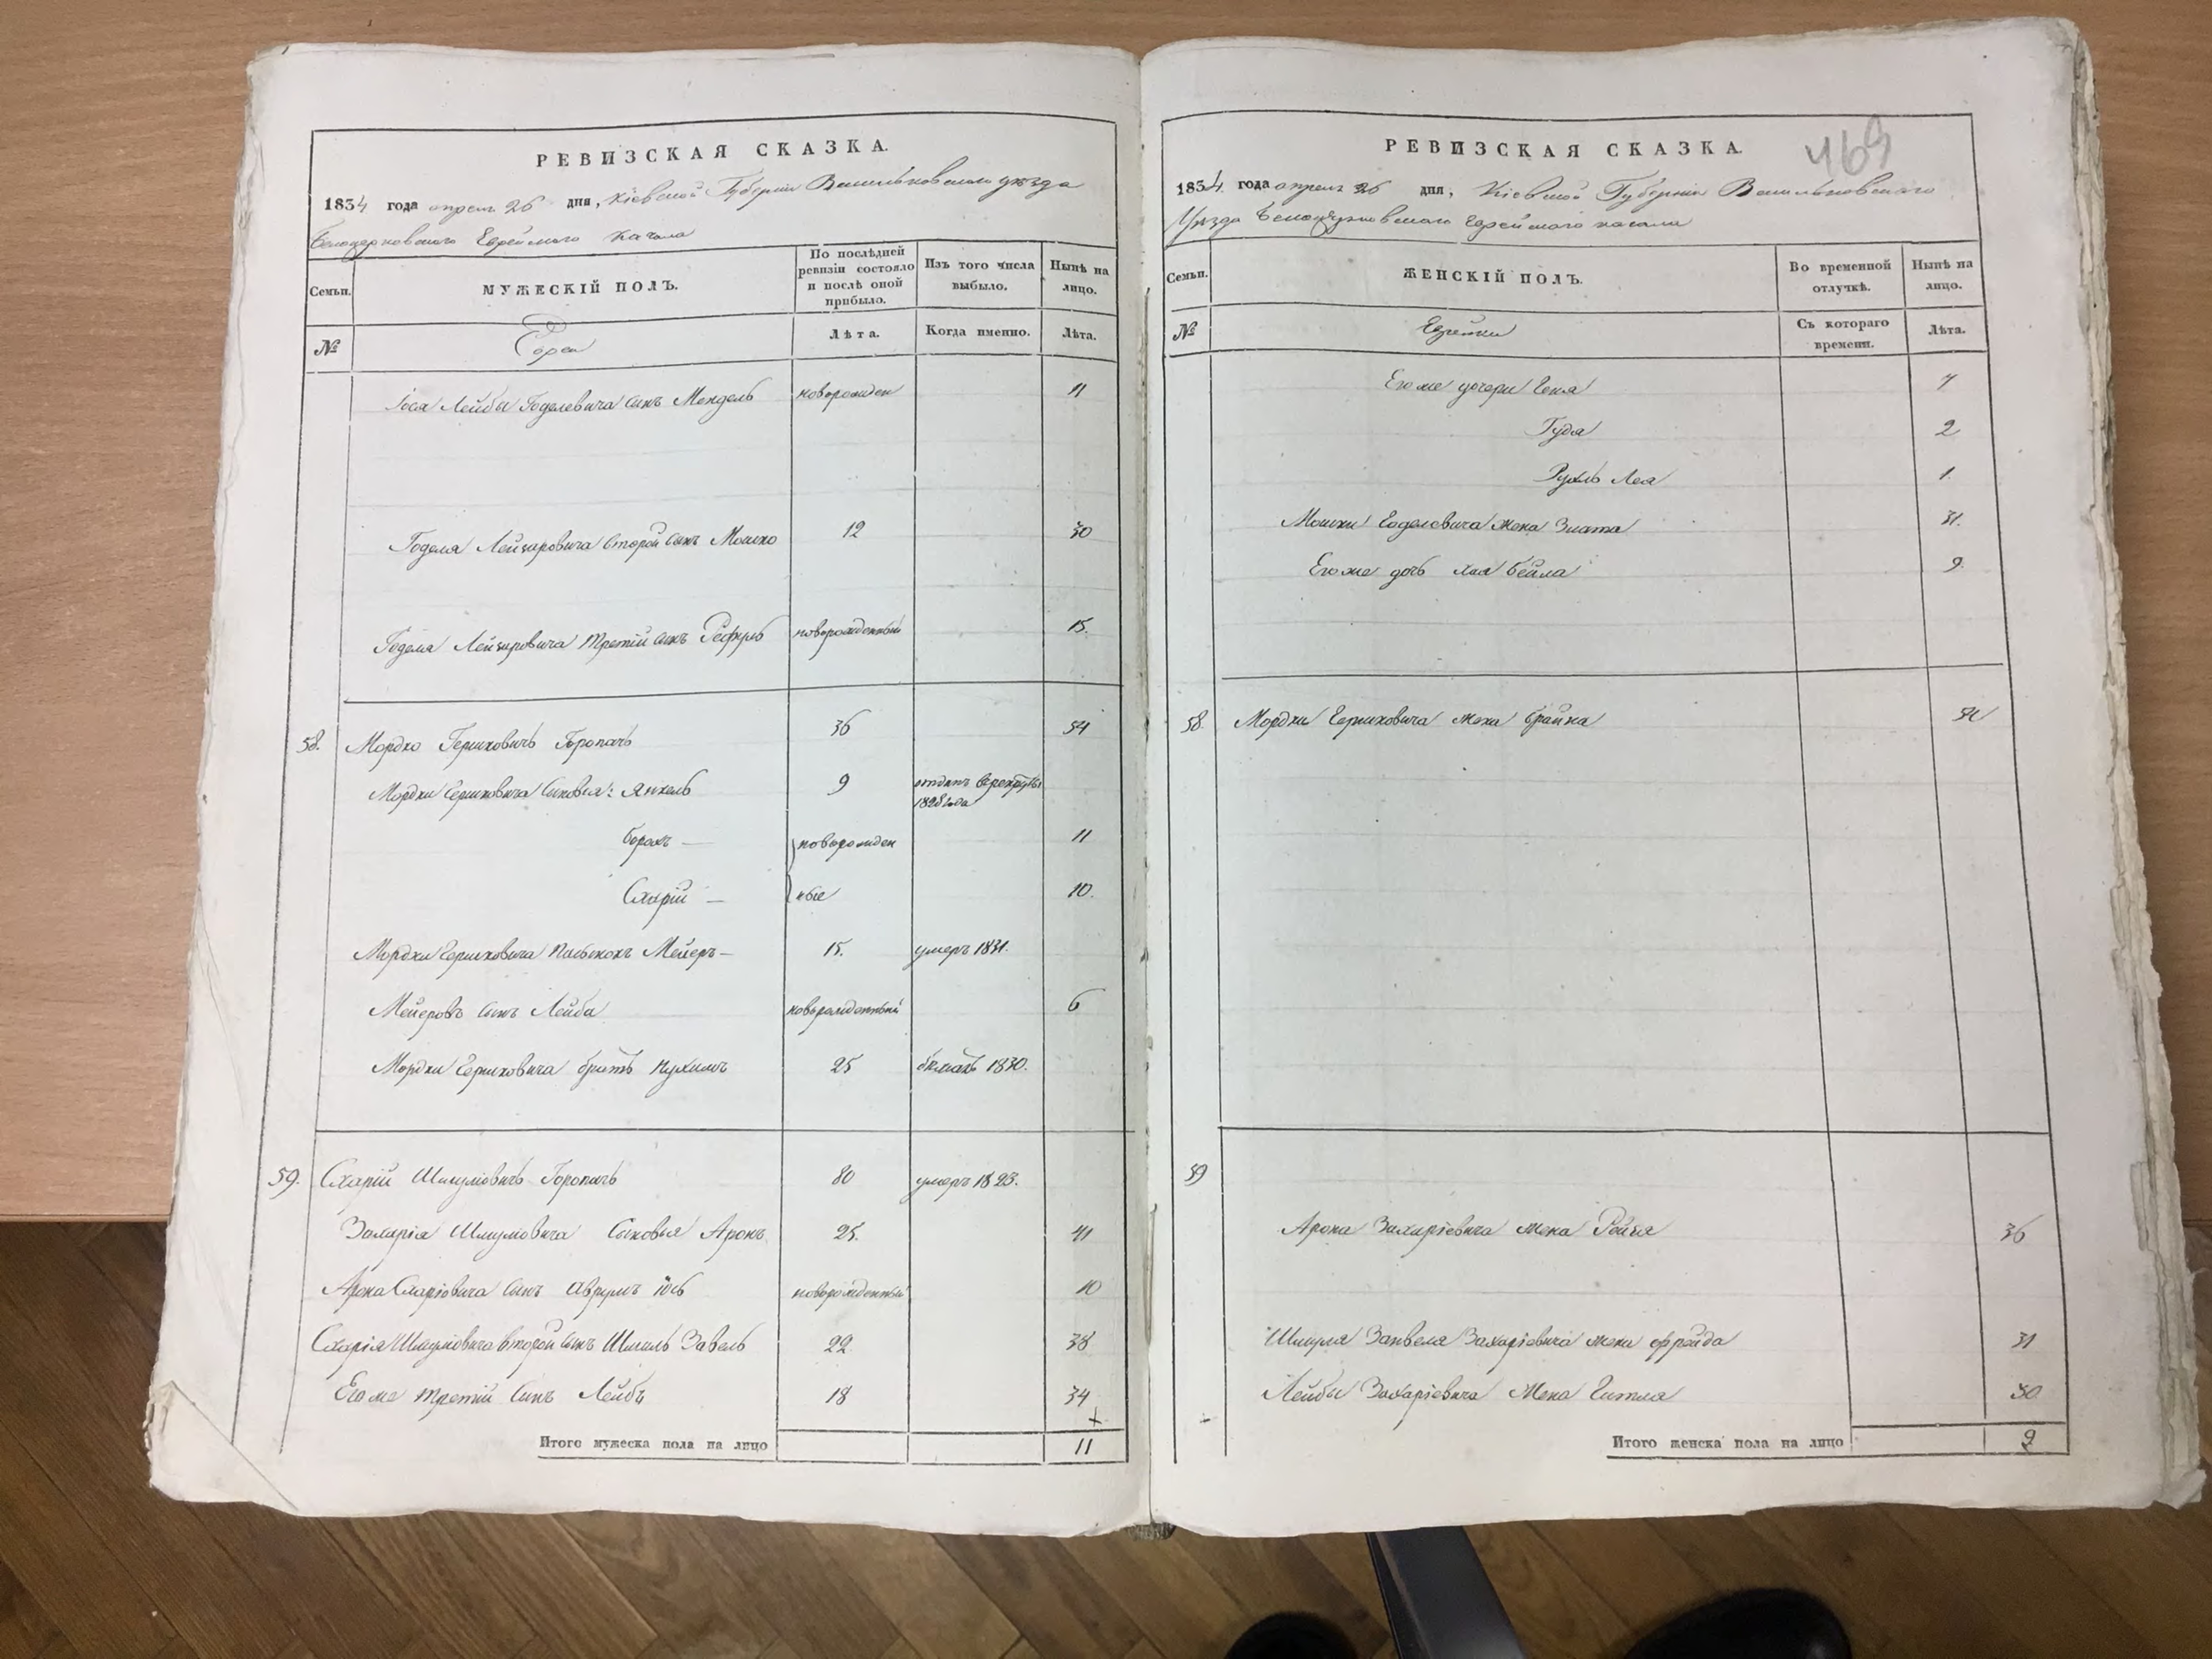 РЕВИЗСКАЯ СКАЗКА.
1834 года апреля 26 дня, Кіевской Губерніи Васильковскаго уѣзда
Белоцерковского Еврейского Кагала
Семьи.
МУЖЕСКІЙ ПОЛЪ.
По послѣдней ревизіи состояло и послѣ оной прибыло.
Изъ того числа выбыло.
Нынѣ на лицо.
№
Евреи
Лѣта.
Когда именно.
Лѣта.
Іося Лейбы Годелевича сынъ Мендель новорожден 11
Годеля Лейзаровича второй сынъ Мошко 12 30
Годеля Лейзаровича третій сынъ новорожденный 15.
58. Мордко Гершковичъ Горопачъ 36 54
Мордки Гершковича сыновья: Янкель 9 отданъ в рекруты 1828 года
Борохъ — новорожден 11
Схарій — ные 10.
Мордки Гершковича Мейеръ — 15. умеръ 1831.
Мейеровъ сынъ Лейба новорожденный 6
Мордки Гершковича братъ Нухимъ 25 1830.
59. Схарій Шмулювичъ Горопачъ 80 умеръ 1823.
Захарія Шмулювича Сыновья Аронъ 25. 41
Арона Схаріовича сынъ Аврумъ Іось новорожденный 10
Схарія Шмулювича второй сынъ Шмуль Завель 22 38
Его же третій Сынъ Лейбъ 18 34
Итого мужеска пола на лицо 11
469
РЕВИЗСКАЯ СКАЗКА.
1834 года апреля 26 дня, Кіевской Губерніи Васильковского
Уѣзда Белоцерковского Еврейского кагала
Семьи.
ЖЕНСКІЙ ПОЛЪ.
Во временной отлучкѣ.
Нынѣ на лицо.
№
Еврейки
Съ котораго времени.
Лѣта.
Его же дочери Геня
Гудя 2
Рухль Лея 1.
Мошки Годелевича жена Злата 31.
Его же дочь Хая Бейла 9.
58. Мордки Гершковича жена Брайна
59
Арона Захаріевича жена Ройзя 36
Шмуля Занвеля Захаріевича жена Фрейда 31
Лейбы Захаріевича Жена Гитля 30
Итого женска пола на лицо 9